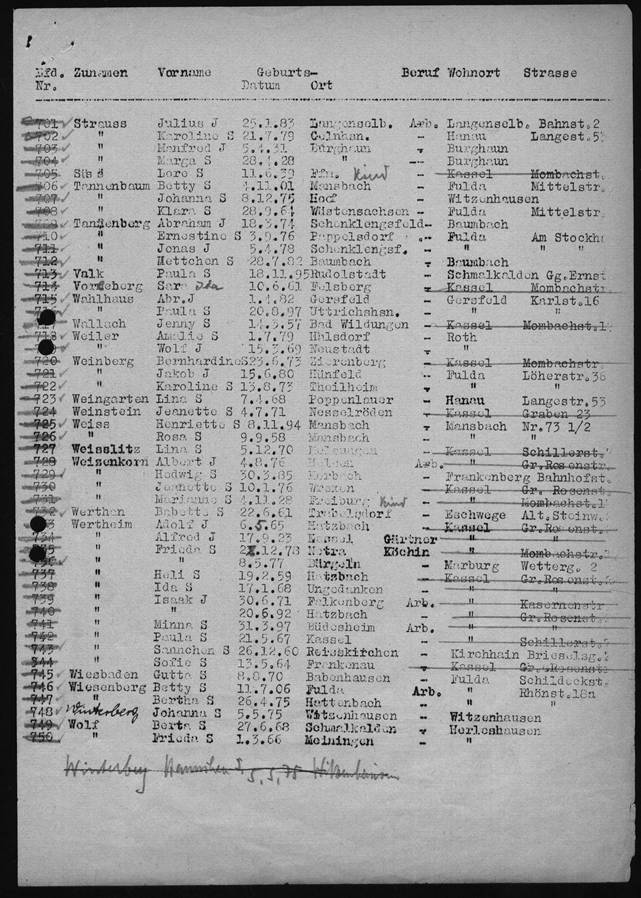 Lfd. Zunamen Vorname Geburts- Beruf Wohnort Strasse
Nr. Datum Ort
701 Strauss Julius J 25.1.83 Langenselb. Arb. Langenselb. Bahnst.2
702 " Karoline S 21.7.79 Gelnhsn. - Hanau Langest.5
703 " Manfred J 5.4.31 Burghaun - Burghaun
704 " Marga S 28.4.28 " - Burghaun
705 Süs Lore S 11.6.39 Ffm. Kind - Kassel Mombachst.
706 Tannenbaum Betty S 4.11.01 Mansbach - Fulda Mittelstr.
707 " Johanna S 8.12.75 Hoof - Witzenhausen
708 " Klara S 28.9.64 Wüstensachsen - Fulda Mittelstr.
709 Tannenberg Abraham J 18.3.74 Schenklengsfeld- Baumbach
710 " Ernestine S 3.9.76 Pappelsdorf - Fulda Am Stockh
711 " Jonas J 5.4.78 Schenklengsf. - "
712 " Mettchen S 28.7.82 Baumbach - Baumbach
713 Valk Paula S 18.11.95 Rudolstadt - Schmalkalden Gg.Ernst
714 Vorreberg Sara Ida 10.6.61 Felsberg - Kassel Mombachstr.
715 Wahlhaus Abr.J 1.4.82 Gersfeld - Gersfeld Karlst.16
" Paula S 20.8.97 Uttrichshsn. - " "
717 Wallach Jenny S 14.3.57 Bad Wildungen - Kassel Mombachst.1
Weiler Amalie S 1.7.79 Hülsdorf - Roth
" Wolf J 15.3.69 Neustadt - "
720 Weinberg Bernhardine S 23.6.73 Zierenberg - Kassel Mombachstr.
721 " Jakob J 15.6.80 Hünfeld - Fulda Löherstr.36
722 " Karoline S 13.8.73 Theilheim - " "
723 Weingarten Lina S 7.4.68 Poppenlauer - Hanau Langestr.53
724 Weinstein Jeanette S 4.7.71 Nesselröden - Kassel Graben 23
725 Weiss Henriette S 8.11.94 Mansbach - Mansbach Nr.73 1/2
726 " Rosa S 9.9.58 Mansbach - " "
727 Weisslitz Lina S 5.12.70 - Kassel Schillerst.
728 Weizenkorn Albert J 4.8.76 Arb. " Gr.Rosenstr.
729 " Hedwig S 30.3.85 - Frankenberg Bahnhofst.
730 " Jeanette S 10.1.76 - Kassel Gr. Rosenst
731 " Marianne S 4.11.28 Freiburg Kind - " Mombachst.1
732 Werthan Babette S 22.6.61 Trabelsdorf - Eschwege Alt.Steinw.
Wertheim Adolf J 6.5.65 Hatzbach - Kassel Gr.Rosenst.
734 " Alfred J 17.9.23 Kassel Gärtner " "
" Frieda S 12.78 Netra Köchin " Mombachstr.
736 " " 8.5.77 Bürgeln - Marburg Wetterg. 2
737 " Heli S 19.2.59 Hatzbach - Kassel Gr.Rosenst.
738 " Ida S 17.1.68 Ungedanken - " "
739 " Isaak J 30.6.71 Falkenberg Arb. " Kasernenstr
740 " " 20.6.92 Hatzbach - " Gr.Rosenst
741 " Minna S 31.3.97 Büdesheim Arb. " "
742 " Paula S 21.5.67 Kassel - " Schillerst.
743 " Sannchen S 26.12.60 Reisskirchen - Kirchhain Brieselsg.
744 " Sofie S 13.5.64 Frankenau - Kassel Gr.Rosenst
745 Wiesbaden Gutta S 8.8.70 Babenhausen - Fulda Schildeckst.
746 Wiesenberg Betty S 11.7.06 Fulda Arb. " Rhönst.18a
747 " Bertha S 26.4.75 Hattenbach - " "
748 Winterberg Johanna S 5.5.75 Witzenhausen - Witzenhausen
749 Wolf Berta S 27.6.68 Schmalkalden - Herleshausen
750 " Frieda S 1.3.66 Meiningen - "
Winterberg Hannchen S. 5.5.75 Witzenhausen